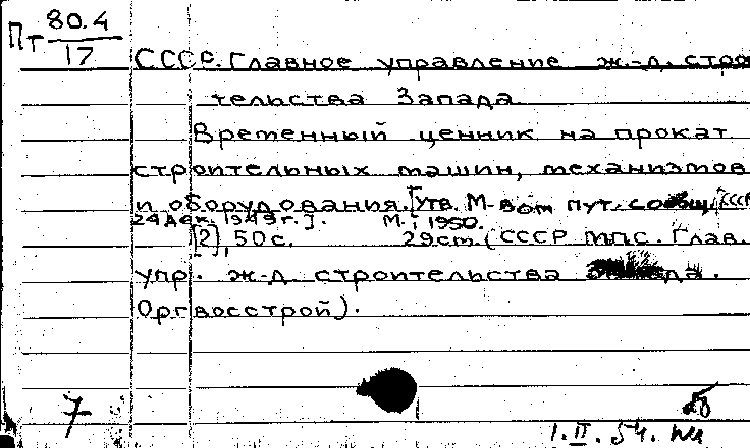 Пт 80.4
17
СССР. Главное управление ж.-д. строи
тельства Запада
Временный ценник на прокат
строительных машин, механизмов
и оборудования. [Утв. М-вом пут. сообщ. СССР
24 дек. 1949 г.]. М., 1950.
[2], 50 с. 29 см. (СССР МПС. Глав.
упр. ж-д. строительства Запада.
Оргвосстрой).
7
1.II.54.